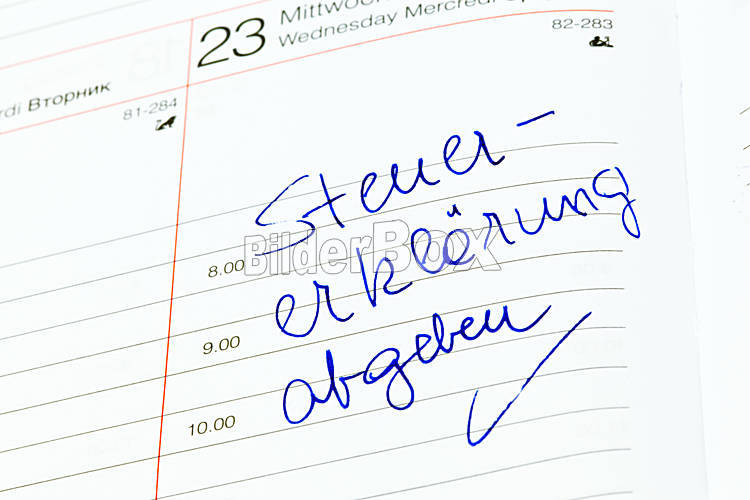 23 Mittwoch
Wednesday Mercredi
82-283
rdi Вторник
81-284
Steuer-
erklärung
abgeben
8.00
9.00
10.00
BilderBox